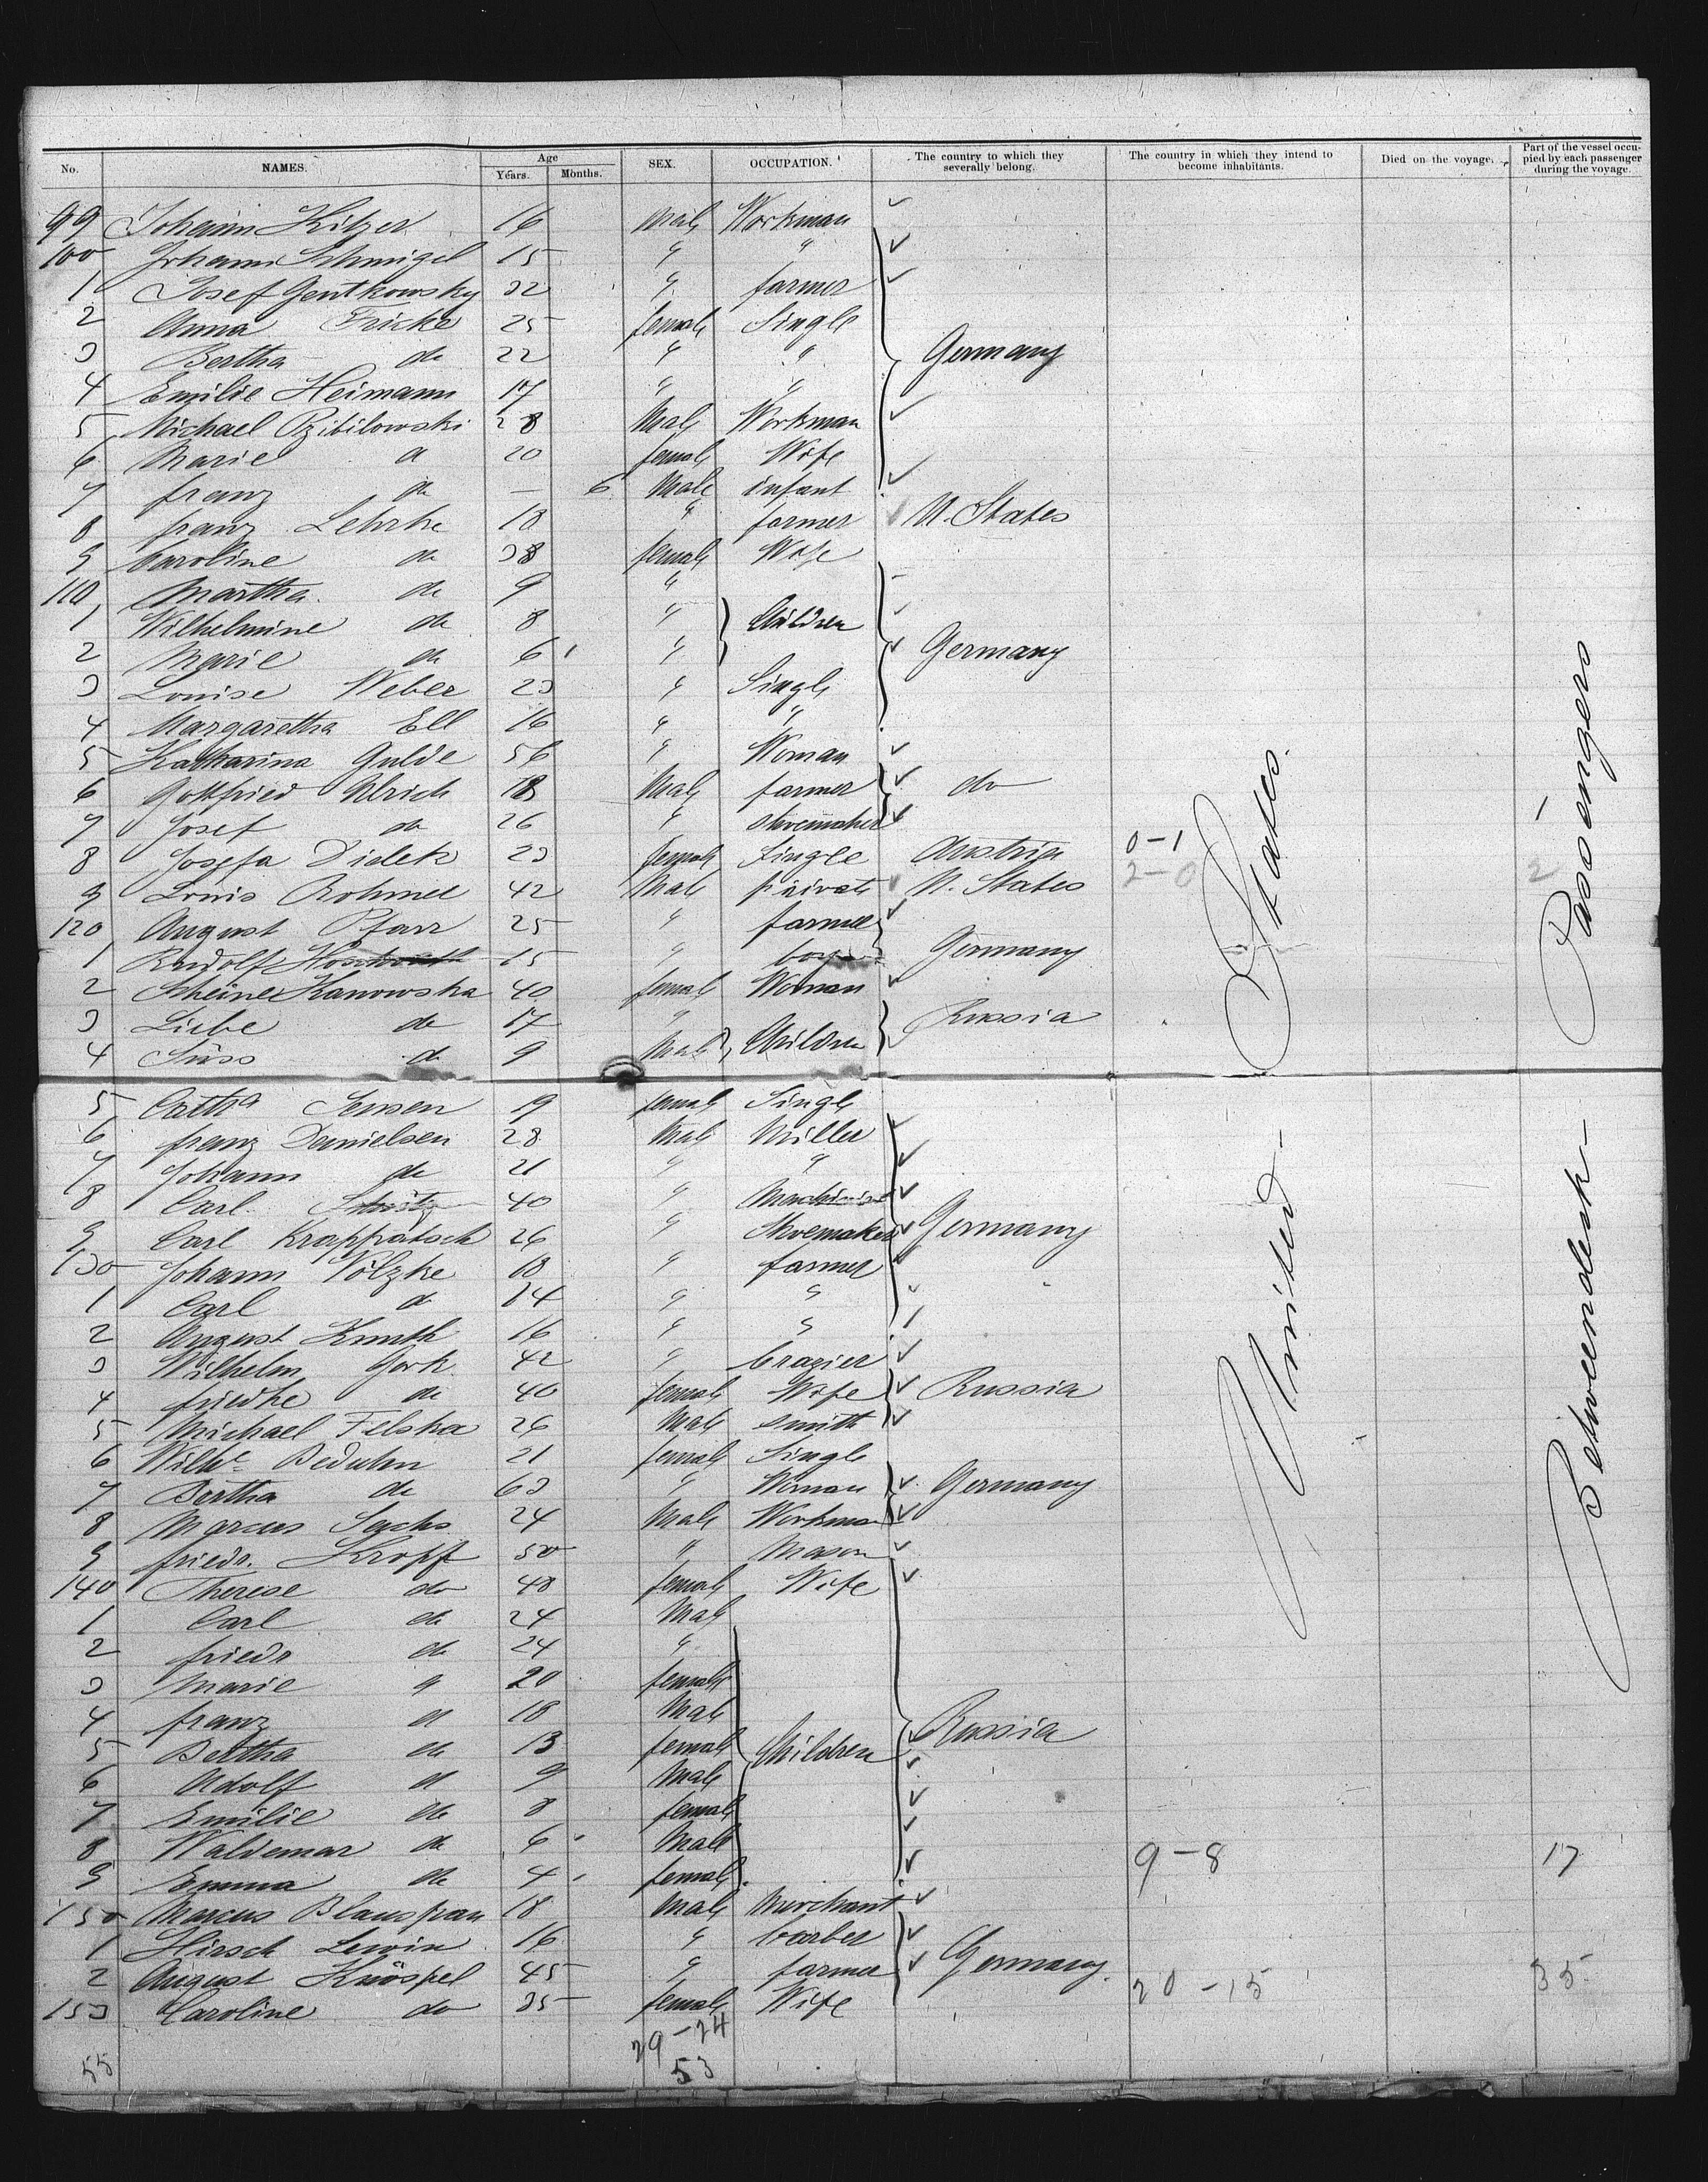 No. NAMES. Age Years. Months. SEX. OCCUPATION. The country to which they severally belong. The country in which they intend to become inhabitants. Died on the voyage. Part of the vessel occupied by each passenger during the voyage.
99 Johann Hilzer 16 Male Workman
100 Johann Schmigel 15 " "
1 Josef Gentkowsky 32 " farmer
2 Anna Fricke 25 female Single
3 Bertha do 22 " " Germany
4 Emilie Heimann 17 " "
5 Michael Pzibilowski 28 Male Workman
6 Marie d 20 female Wife
7 franz do — 6 Male infant
8 franz Lehrke 18 " farmer U. States
9 Caroline do 38 female Wife
110 Martha do 9 "
1 Wilhelmine do 8 " Children
2 Marie do 6 " Germany
3 Louise Weber 23 " Single
4 Margaretha Ell 16 " "
5 Katharina Gulde 56 " Woman
6 Gottfried Ulrich 18 Male farmer do
7 Josef do 26 " shoemaker
8 Josefa Didek 23 female Single Austria 0-1
9 Louis Rohmer 42 Male private U. States 2-0 2
120 August Pfarr 25 " farmer
1 Rudolf 15 " boy Germany
2 Scheine Kanowska 40 female Woman
3 Liebe do 17 " Russia
4 Süss do 9 Male Children
5 Catha Jensen 19 female Single
6 franz Danielsen 28 Male Miller
7 Johann do 21 " "
8 Carl 40 " Machinist
9 Carl Krappatsch 26 " Shoemaker Germany
130 Johann Völzke 18 " farmer
1 Carl do 14 " "
2 August Knuth 16 " "
3 Wilhelm Gork 42 " brazier
4 friedke do 40 female Wife Russia
5 Michael Felska 26 Male smith
6 Wilhe Beduhn 21 female Single
7 Bertha do 63 " Woman Germany
8 Marcus Sachs 24 Male Workman
9 friedr. Kropf 50 " Mason
140 Therese do 48 female Wife
1 Carl do 24 Male
2 friedr do 24 "
3 Marie d 20 female
4 franz d 18 Male
5 Bertha do 13 female Children Russia
6 Adolf d 9 Male
7 Emilie do 8 female
8 Waldemar do 6 Male 9-8 17
9 Emma do 4 female
150 Marcus Blauspan 18 Male Merchant
1 Hirsch Lewin 16 " barber
2 August Knöspel 45 " farmer Germany. 20-15 35
153 Caroline do 35 female Wife
29-24
55 53
United States.
Betweendeck Passengers